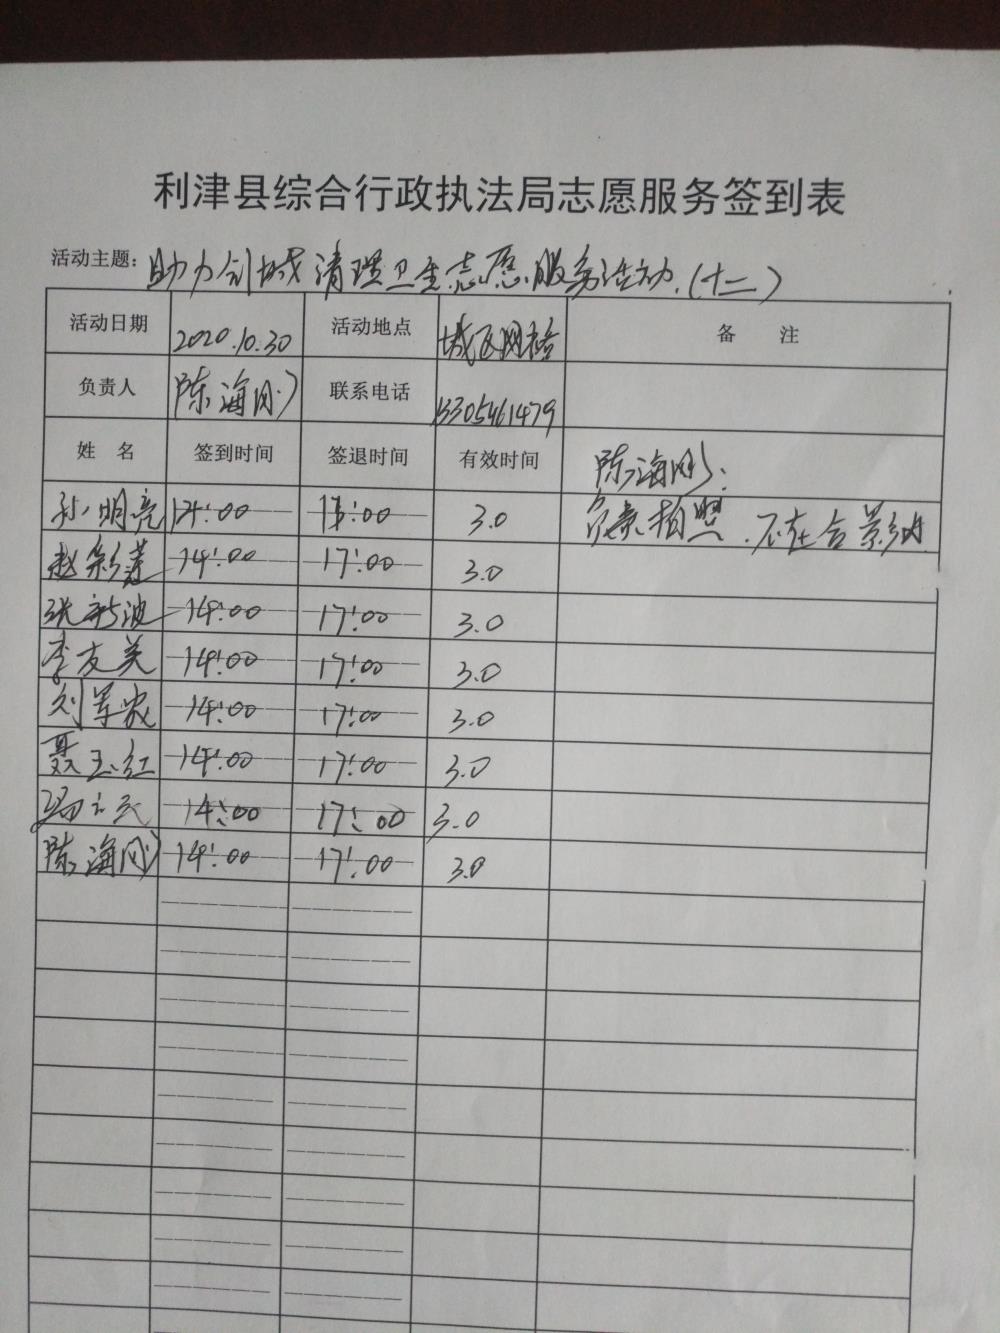 利津县综合行政执法局志愿服务签到表
活动主题: 助力创城清理卫生志愿服务活动.(十二)
活动日期 2020.10.30 活动地点 城区网格 备 注
负责人 陈海刚 联系电话 13305461479
姓 名 签到时间 签退时间 有效时间 陈海刚:
孙明亮 14:00 17:00 3.0 负责拍照.不在合影内.
赵彩莲 14:00 17:00 3.0
张新波 14:00 17:00 3.0
李友美 14:00 17:00 3.0
刘军家 14:00 17:00 3.0
聂玉红 14:00 17:00 3.0
14:00 17:00 3.0
陈海刚 14:00 17:00 3.0